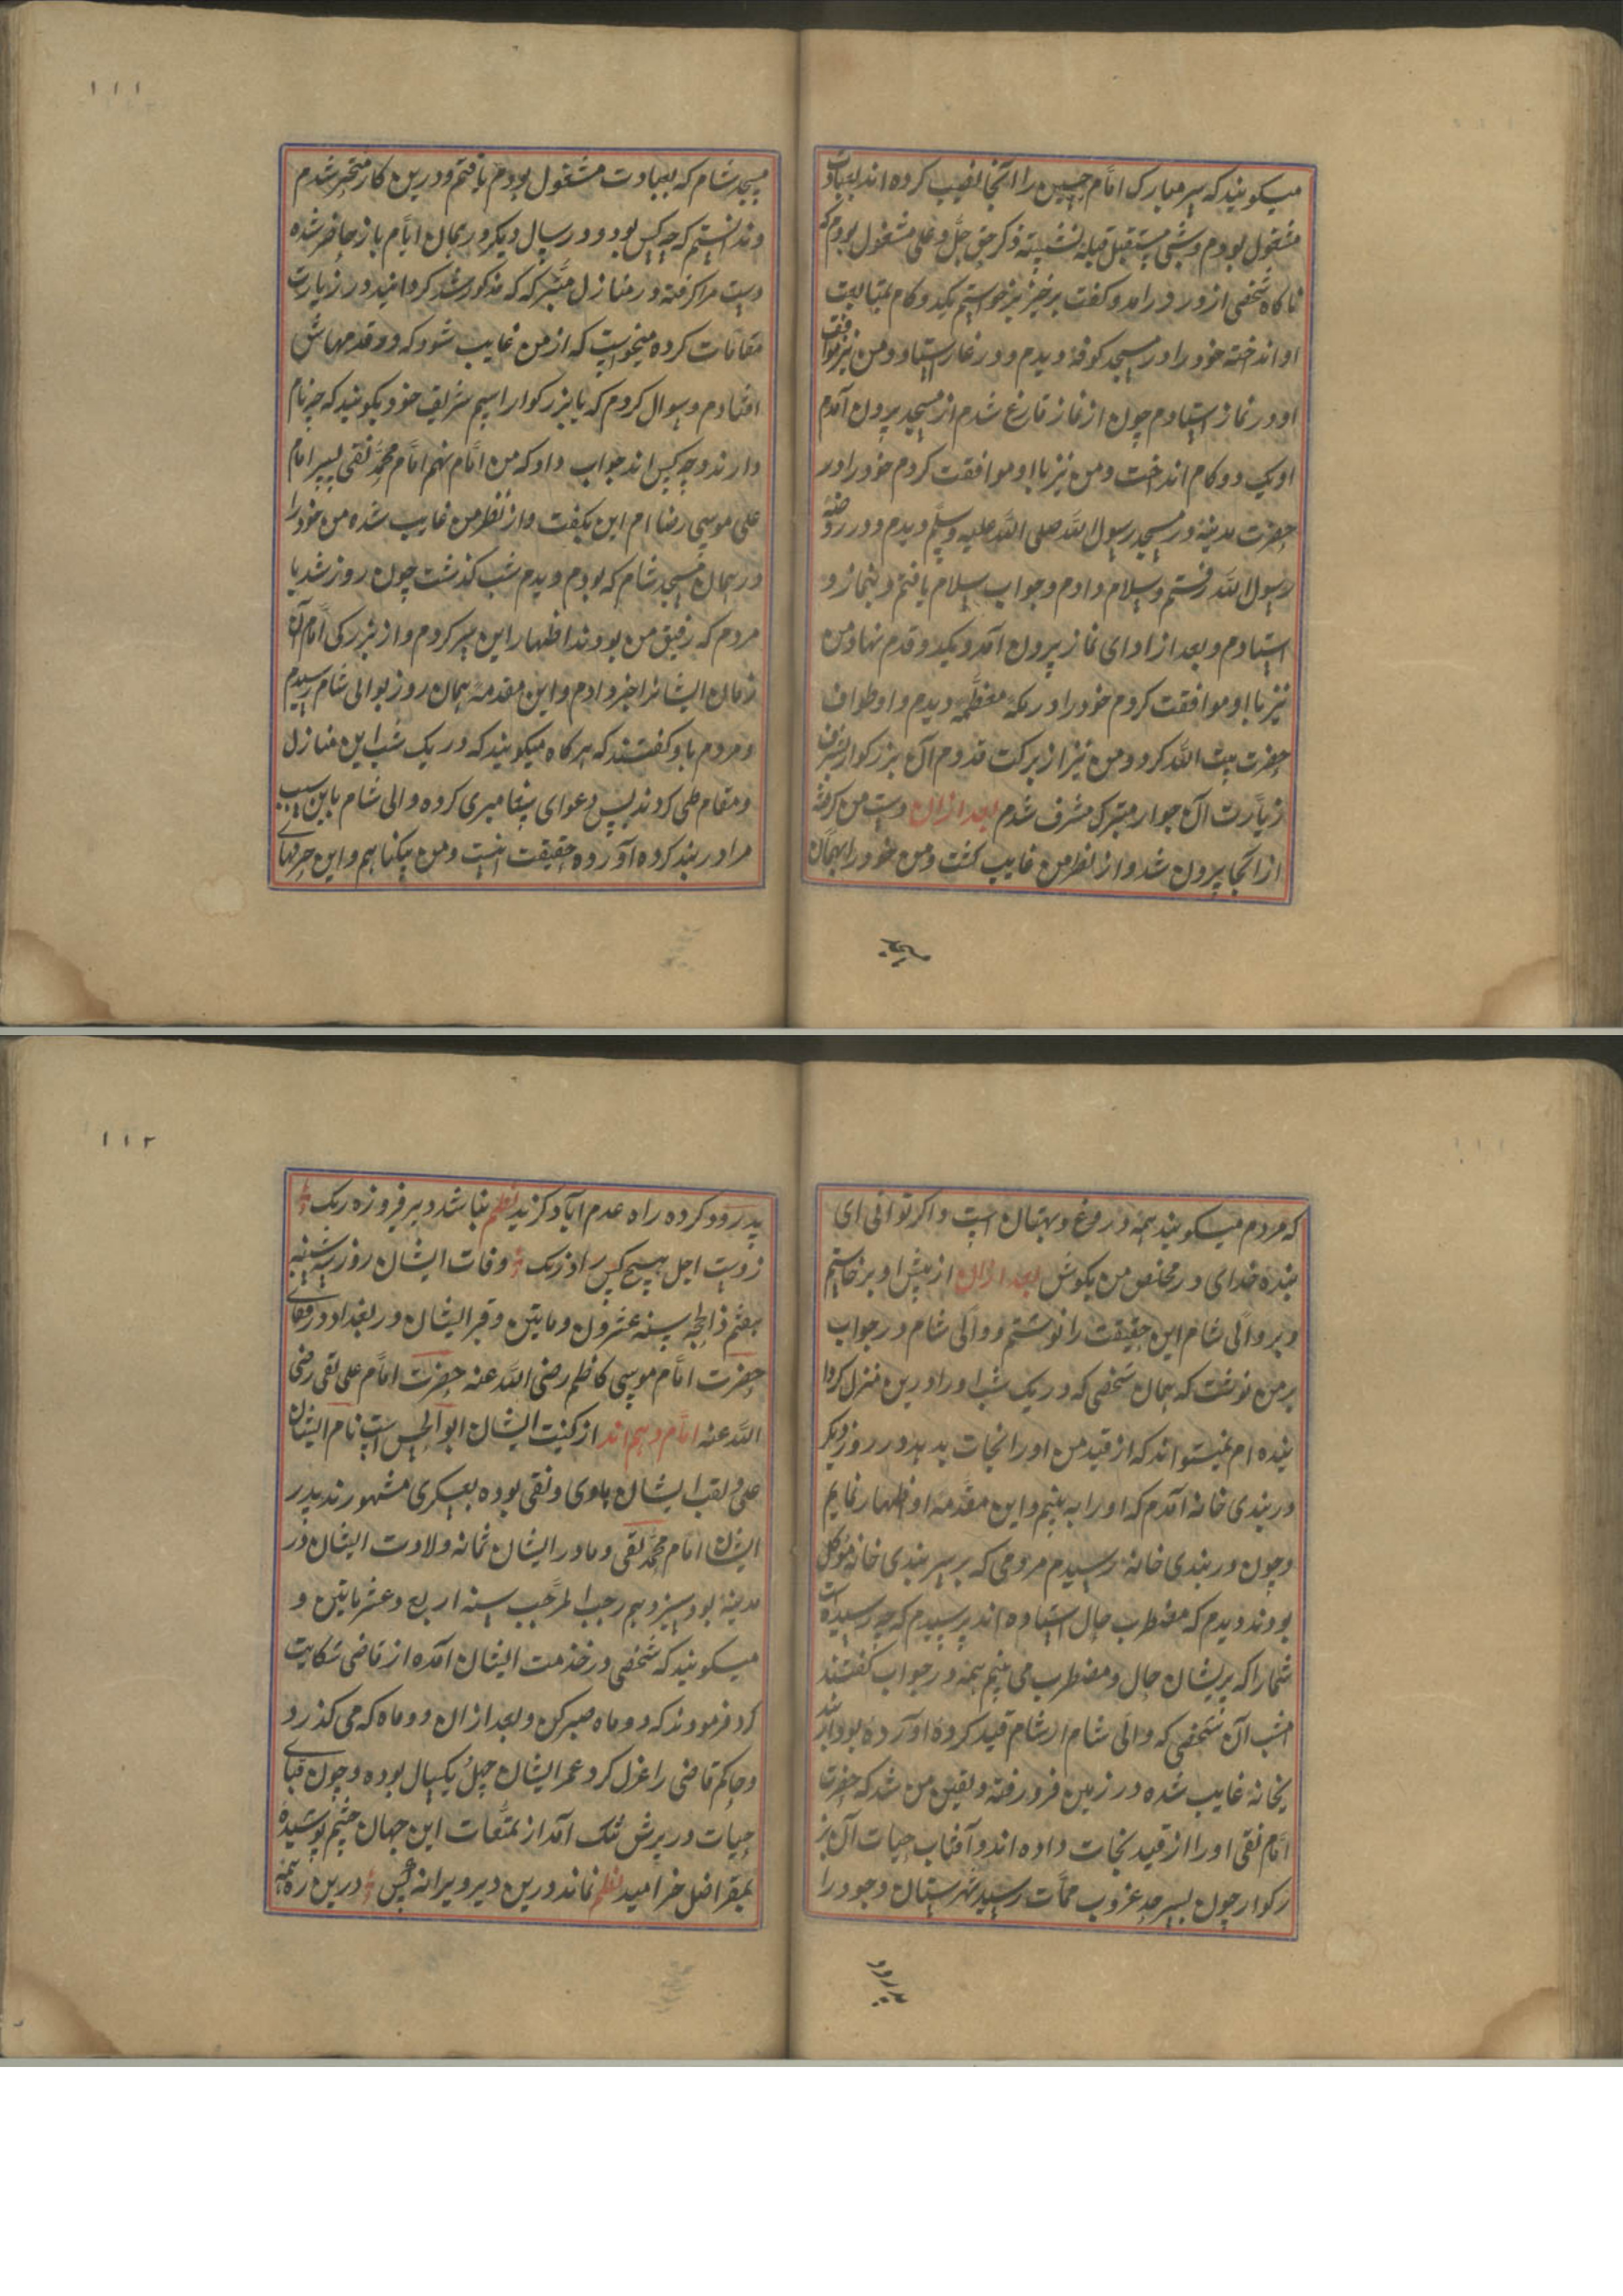 میکویند که سر مبارک امام حسین را انجا نصب کرده اند بعبادت
مشغول بودم و شبی مستقبل قبله نشسته ذکر حق جل و علی مشغول بودم که
ناکاه شخصی از در درامد و کفت برخیز برخواستم یکدو کام بمتابعت
او انداخته خود را در مسجد کوفه دیدم و در نماز استاد و من نیز موافقت
او در نماز استادم چون از نماز فارغ شدم از مسجد برون آمدم
او یک دو کام انداخت و من نیز با او موافقت کردم خود را در
حضرت مدینه در مسجد رسول الله صلی الله علیه وسلم دیدم و در روضهٔ
رسول الله رفتم و سلام دادم و جواب سلام یافتم و بنماز و
استادم و بعد از ادای نماز برون آمد و یکدو قدم نهاد من
نیز با او موافقت کردم خود را در مکهٔ معظمه دیدم و او طواف
حضرت بیت الله کرد و من نیز از برکت قدوم آن بزرکوار بشرف
زیارت آن جوار متبرک مشرف شدم بعد ازان دست من کرفته
از انجا برون شد و از نظر من غایب کشت و من خود را بهمان
مسجد
۱۱۱
مسجد شام که بعبادت مشغول بودم یافتم و درین کار متحیر شدم
و ندانستم که چه کس بود و در سال دیکر در همان ایام باز حاضر شده
دست مرا کرفته در منازل متبرکه که مذکور شد کردانید و در زیارت
مقامات کرده میخواست که از من غایب شود که در قدمهاش
افتادم و سوال کردم که یا بزرکوار اسم شریف خود بکویند که چه نام
دارند و چه کس اند جواب داد که من امام نهم امام محمد تقی پسر امام
علی موسی رضا ام این بکفت و از نظر من غایب شده من خود را
در همان مسجد شام که بودم دیدم شب کذشت چون روز شد با
مردم که رفیق من بودند اظهار این سر کردم و از بزرکی امام آن
زمان ایشانرا خبر دادم و این مقدمه همان روز بوالی شام رسیدم
و مردم باو کفتند که هرکاه میکویند که در یک شب این منازل
و مقام طی کردند پس دعوای پیغامبری کرده والی شام باین سبب
مرا در بند کرده آورده حقیقت اینست و من بیکناهم و این حرفهای
که مردم میکویند همه دروغ و بهتان است و اکر توانی ای
بندهٔ خدای در مخلص من بکوش بعد ازان از پیش او برخاستم
و بر والی شام این حقیقت را نوشتم و والی شام در جواب
بر من نوشت که همان شخصی که در یک شب او را درین منزل کردا
نیده ام میتواند که از قید من او را نجات بدهد در روز دیکر
در بندی خانه آمدم که او را به بینم و این مقدمه او اظهار نمایم
و چون در بندی خانه رسیدم مردمی که بر سر بندی خانه موکل
بودند دیدم که مضطرب حال استاده اند پرسیدم که چه رسیده است
شما را که پریشان حال و مضطرب می بینم همه در جواب کفتند
امشب آن شخصی که والی شام از شام قید کرده آورده بود از بند
یخانه غایب شده در زمین فرو رفته و یقین من شد که حضرت
امام تقی او را از قید نجات داده اند و آفتاب حیات آن بز
رکوار چون بسرحد غروب ممات رسید شهرستان وجود را
پدرود
۱۱۲
پدرود کرده راه عدم آباد کزید نظم نباشد دبر فیروزه رنک
ز دست اجل هیچ کس را درنک وفات ایشان روز سه شنبه
هفتم ذالحجه سنه عشرون و مایتین و قبر ایشان در بغداد در قفای
حضرت امام موسی کاظم رضی الله عنه حضرت امام علی نقی رضی
الله عنه امام دهم اند از کنیت ایشان ابوالحسن است نام ایشان
علی و لقب ایشان هادی و نقی بوده بعسکری مشهورند پدر
ایشان امام محمد تقی و مادر ایشان ثمانه ولادت ایشان در
مدینه بود سیزدهم رجب المرجب سنه اربع و عشر مایتین و
میکویند که شخصی در خدمت ایشان آمده از قاضی شکایت
کرد فرمودند که دو ماه صبر کن و بعد ازان دو ماه که می کذرد
و حاکم قاضی را عزل کرد و عمر ایشان چهل یکسال بوده و چون قبای
حیات در برش تنک آمد از تمتعات این جهان چشم پوشیده
بمقر اصل خرامید نظم نماند درین دیر ویرانه کس درین ره همه